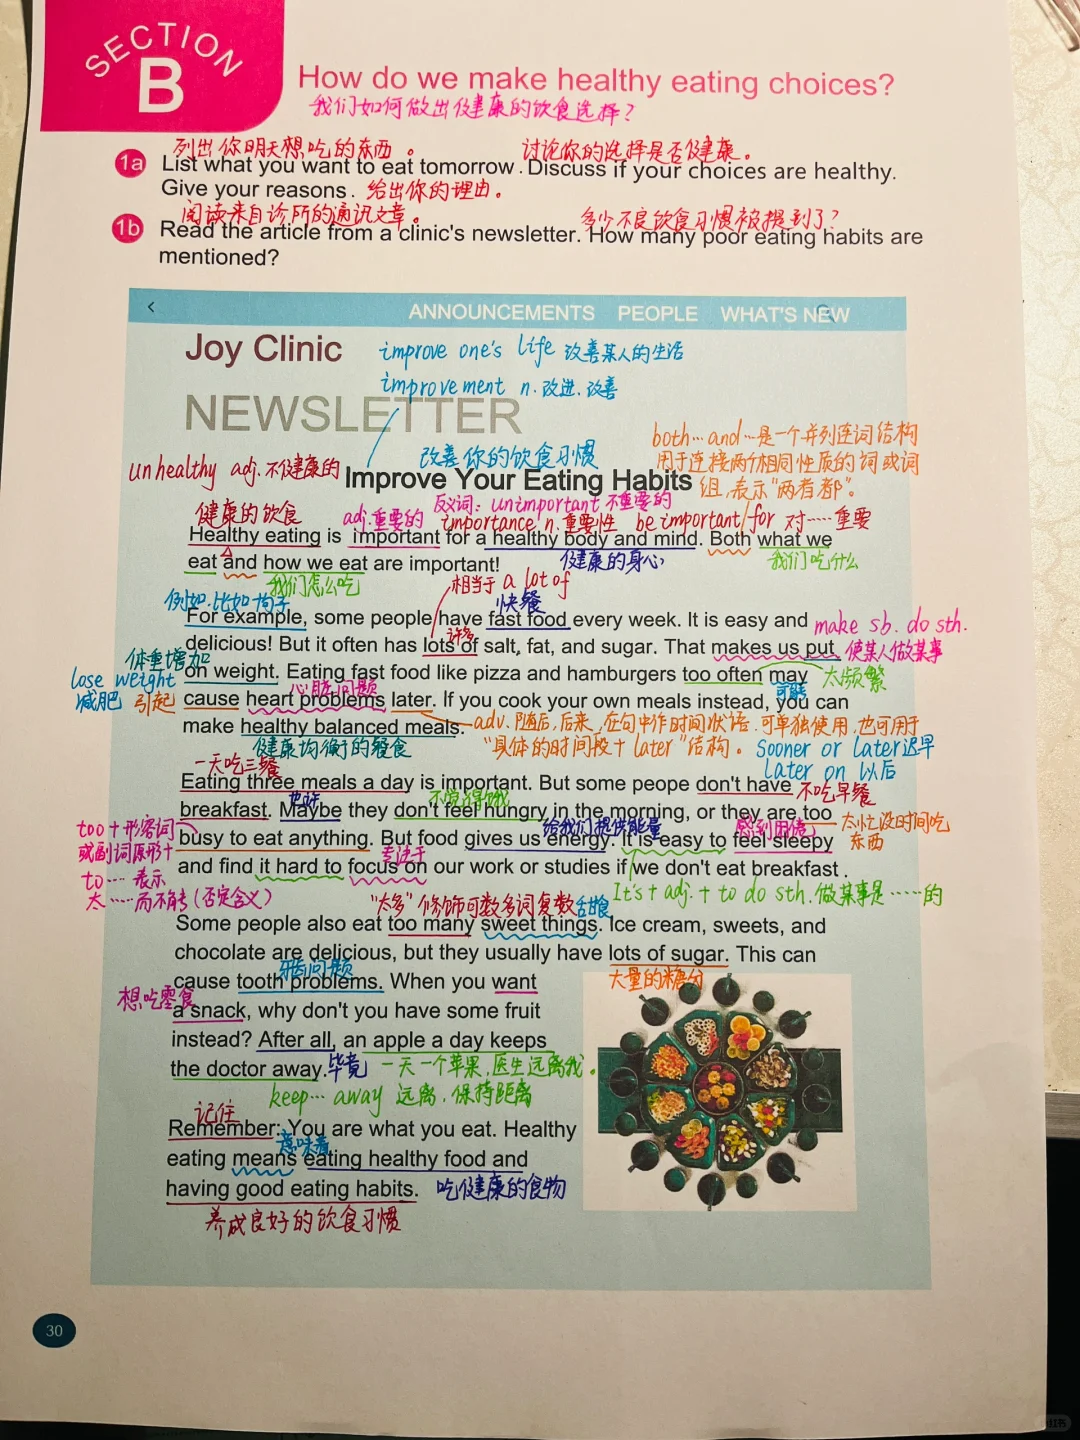 SECTION
B
How do we make healthy eating choices?
我们如何做出健康的饮食选择?
列出你明天想吃的东西。 讨论你的选择是否健康。
1a List what you want to eat tomorrow. Discuss if your choices are healthy.
Give your reasons. 给出你的理由。
阅读来自诊所的通讯文章。 多少不良饮食习惯被提到了?
1b Read the article from a clinic's newsletter. How many poor eating habits are
mentioned?
ANNOUNCEMENTS PEOPLE WHAT'S NEW
Joy Clinic
improve one's life 改善某人的生活
improvement n. 改进.改善
NEWSLETTER
both…and…是一个并列连词结构
用于连接两个相同性质的词或词
组,表示"两者都"。
unhealthy adj.不健康的
改善你的饮食习惯
Improve Your Eating Habits
反义词: unimportant 不重要的
健康的饮食 adj.重要的 importance n.重要性 be important for 对……重要
Healthy eating is important for a healthy body and mind. Both what we
eat and how we eat are important!
健康的身心 我们吃什么
我们怎么吃 相当于 a lot of
例如.比如 句子 快餐
For example, some people have fast food every week. It is easy and
make sb. do sth.
使某人做某事
许多
delicious! But it often has lots of salt, fat, and sugar. That makes us put
体重增加
lose weight
减肥
on weight. Eating fast food like pizza and hamburgers too often may
太频繁
可能
引起 心脏问题
cause heart problems later. If you cook your own meals instead, you can
make healthy balanced meals.
adv.随后,后来,在句中作时间状语.可单独使用,也可用于
"具体的时间段+later"结构。 Sooner or later迟早
later on 以后
健康均衡的餐食
一天吃三餐
Eating three meals a day is important. But some peope don't have
不吃早餐
也许 不觉得饿
breakfast. Maybe they don't feel hungry in the morning, or they are too
太忙没时间吃
东西
too+形容词
或副词原形+
to…… 表示
太……而不能(否定含义)
给我们提供能量 感到困倦
busy to eat anything. But food gives us energy. It is easy to feel sleepy
专注于
and find it hard to focus on our work or studies if we don't eat breakfast.
It's + adj. + to do sth. 做某事是……的
"太多"修饰可数名词复数 甜食
Some people also eat too many sweet things. Ice cream, sweets, and
chocolate are delicious, but they usually have lots of sugar. This can
大量的糖分
牙齿问题
cause tooth problems. When you want
想吃零食
a snack, why don't you have some fruit
instead? After all, an apple a day keeps
the doctor away. 毕竟 一天一个苹果,医生远离我。
keep… away 远离.保持距离
记住
Remember: You are what you eat. Healthy
意味着
eating means eating healthy food and
having good eating habits. 吃健康的食物
养成良好的饮食习惯
30